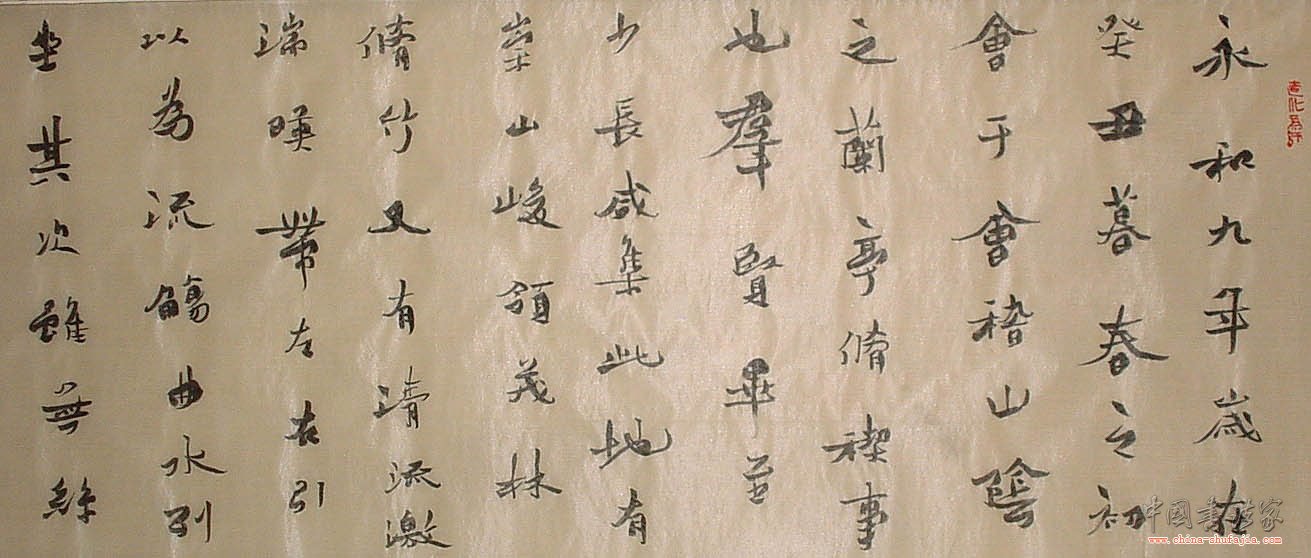 永和九年歲在
癸丑暮春之初
會于會稽山陰
之蘭亭脩禊事
也羣賢畢至
少長咸集此地有
崇山峻領茂林
脩竹又有清流激
湍暎帶左右引
以為流觴曲水列
坐其次雖無絲
中国书法家
www.china-shufajia.com